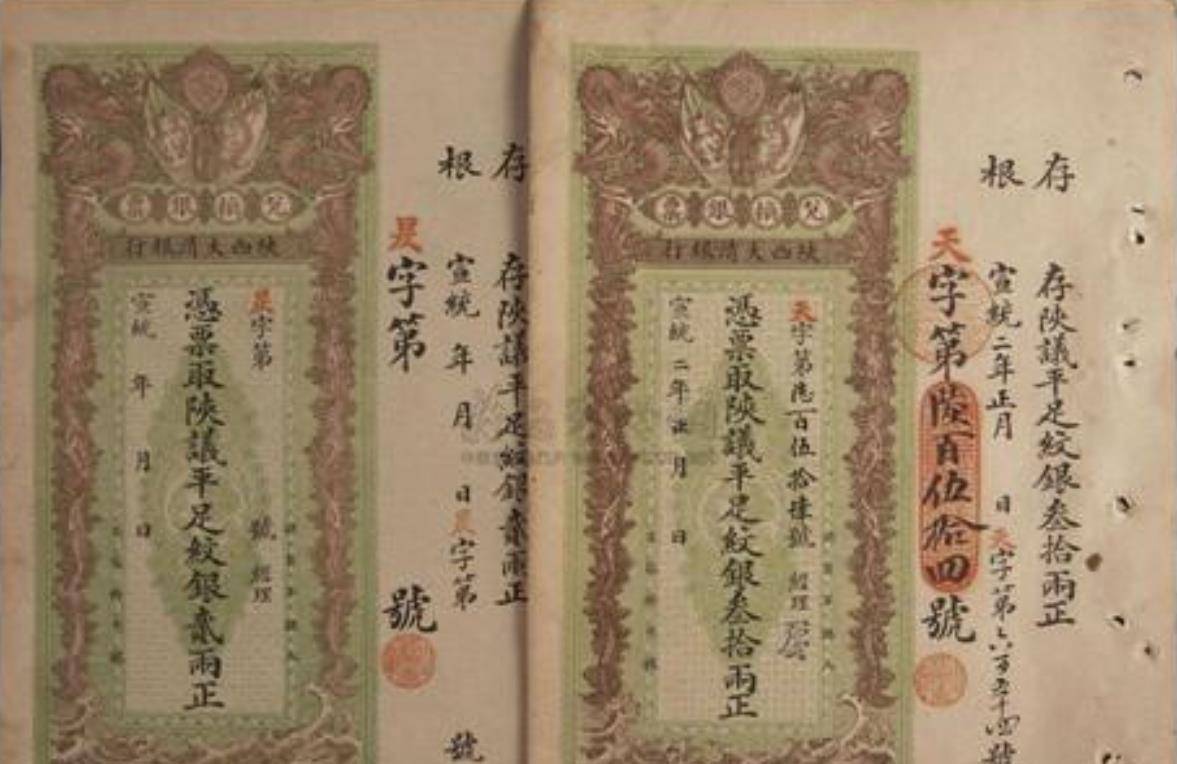 存根
存陝議平足紋銀叁拾兩正
宣統二年正月 日天字第六百五十四號
天字第陸百伍拾四號
兌換銀票
陝西大清銀行
天字第陸百伍拾肆號 經理
憑票取陝議平足紋銀叁拾兩正
宣統二年正月 日
存根
存陝議平足紋銀貳兩正
宣統 年 月 日 字第 號
字第 號
兌換銀票
陝西大清銀行
字第 號 經理
憑票取陝議平足紋銀貳兩正
宣統 年 月 日